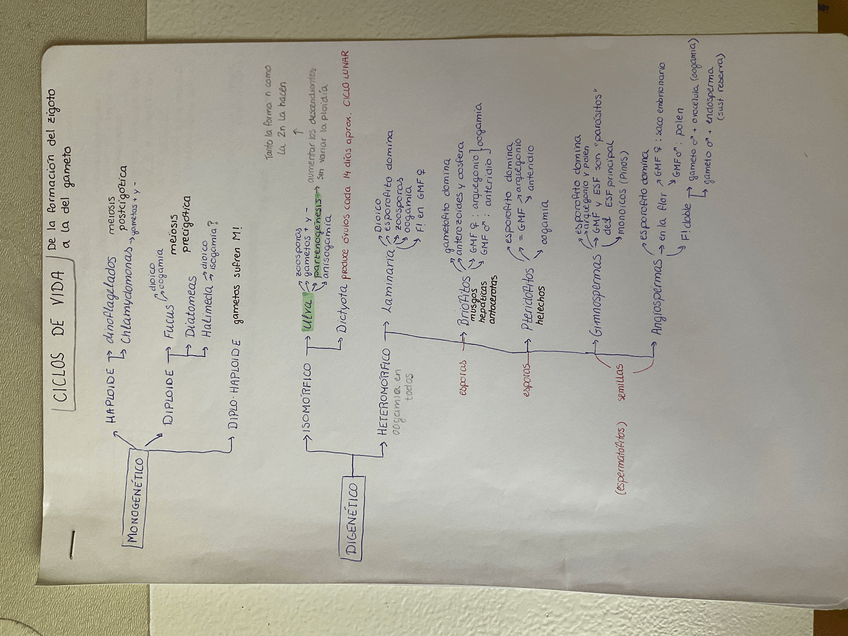 CICLOS DE VIDA
De la formación del zigoto
a la del gameto
MONOGENÉTICO
HAPLOIDE → dinoflagelados
↳ Chlamydomonas → gametos + y -
meiosis
postcigótica
DIPLOIDE → Fucus
dioico
oogamia
→ Diatomeas
↳ Halimeda → dioico
→ isogamia?
meiosis
precigótica
DIPLO-HAPLOIDE gametos sufren M!
DIGENÉTICO
ISOMÓRFICO → Ulva
zoosporas
gametos + y -
partenogénesis → aumentar los descendientes
sin variar la ploidía
↑
Tanto la forma n como
la 2n la hacen
anisogamia
↳ Dictyota produce óvulos cada 14 días aprox. CICLO LUNAR
HETEROMÓRFICO → Laminaria
oogamia en
todos
Dioico
esporofito domina
zoosporas
oogamia
F! en GMF ♀
esporas
Briofitos
musgos
hepáticas
antocerotas
gametofito domina
anterozoides y oosfera
GMF ♀: arquegonio
GMF ♂: anteridio
} oogamia
esporas
Pteridofitos
helechos
esporofito domina
= GMF → arquegonio
↘ anteridio
oogamia
(espermatofitos)
semillas
Gimnospermas
esporofito domina
arquegonio y polen
GMF y ESF son "parásitos"
del ESF principal
monoicos (Pinos)
Angiospermas
esporofito domina
→ en la flor
GMF ♀: saco embrionario
GMF ♂: polen
F! doble
→ gameto ♂ + ovocélula (oogamia)
↳ gameto ♂ + endosperma
(sust reserva)